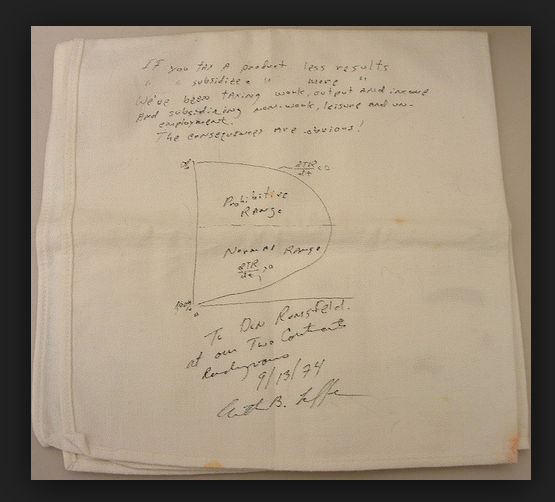 If you tax a product less results
" " subsidize " " more "
We've been taxing work, output and income
and subsidizing non-work, leisure and un-
employment.
The consequences are obvious!
∂TR/∂t < 0
Prohibitive
Range
Normal Range
∂TR/∂t > 0
100%
0
To Don Rumsfeld
at our Two Continents
Rendezvous
9/13/74
Arthur B. Laffer